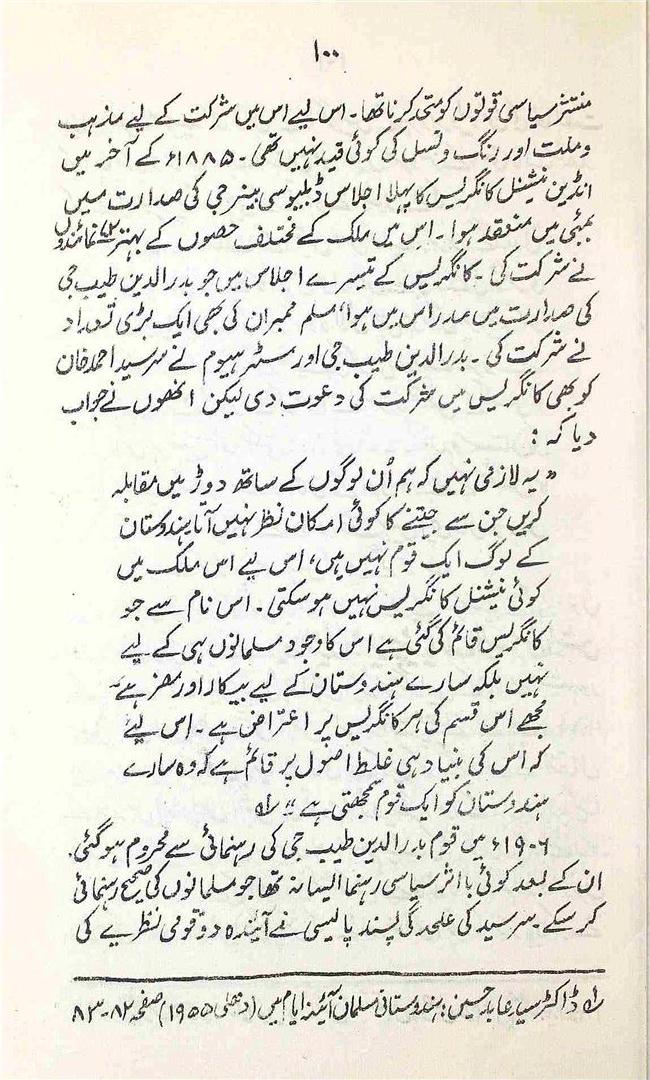 ۱۰۰
منتشر سیاسی قوتوں کو متحد کرنا تھا۔ اس لیے اس میں شرکت کے لیے مذہب
و ملت اور رنگ و نسل کی کوئی قید نہیں تھی۔ ۱۸۸۵ء کے آخر میں
انڈین نیشنل کانگریس کا پہلا اجلاس ڈبلیو سی بینرجی کی صدارت میں
بمبئی میں منعقد ہوا۔ اس میں ملک کے مختلف حصوں کے بہتر ۷۲ نمائندوں
نے شرکت کی۔ کانگریس کے تیسرے اجلاس میں جو بدرالدین طیب جی
کی صدارت میں مدراس میں ہوا، مسلم ممبران کی بھی ایک بڑی تعداد
نے شرکت کی۔ بدرالدین طیب جی اور مسٹر ہیوم نے سرسید احمد خان
کو بھی کانگریس میں شرکت کی دعوت دی لیکن انھوں نے جواب
دیا کہ :
" یہ لازمی نہیں کہ ہم اُن لوگوں کے ساتھ دوڑ میں مقابلہ
کریں جن سے جیتنے کا کوئی امکان نظر نہیں آتا ہندوستان
کے لوگ ایک قوم نہیں ہیں، اس لیے اس ملک میں
کوئی نیشنل کانگریس نہیں ہو سکتی۔ اس نام سے جو
کانگریس قائم کی گئی ہے اس کا وجود مسلمانوں ہی کے لیے
نہیں بلکہ سارے ہندوستان کے لیے بیکار اور مضر ہے۔
مجھے اس قسم کی ہر کانگریس پر اعتراض ہے۔ اس لیے
کہ اس کی بنیاد ہی غلط اصول پر قائم ہے کہ وہ سارے
ہندوستان کو ایک قوم سمجھتی ہے " ؎۱
۱۹۰۶ء میں قوم بدرالدین طیب جی کی رہنمائی سے محروم ہو گئی۔
ان کے بعد کوئی با اثر سیاسی رہنما ایسا نہ تھا جو مسلمانوں کی صحیح رہنمائی
کر سکے۔ سرسید کی علحدگی پسند پالیسی نے آئندہ دو قومی نظریے کی
؎۱ ڈاکٹر سید عابد حسین: ہندوستانی مسلمان آئینۂ ایام میں (دھلی ۱۹۵۵) صفحہ ۸۲-۸۳